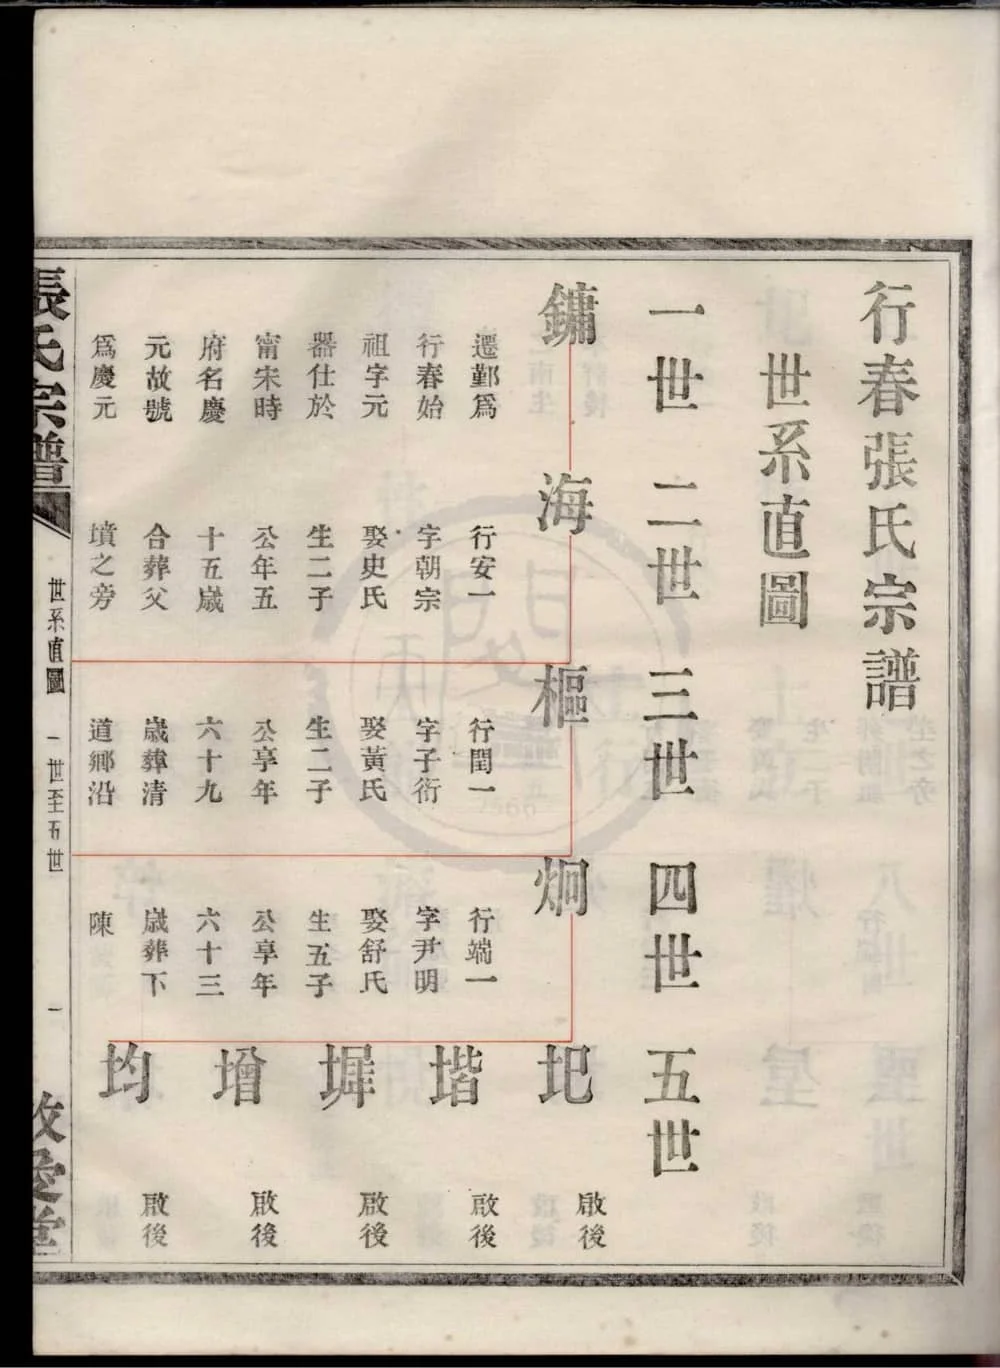 行春張氏宗譜
世系直圖
一世 二世 三世 四世 五世
鏞
遷鄞爲
行春始
祖字元
器仕於
甯宋時
府名慶
元故號
爲慶元
海
行安一
字朝宗
娶史氏
生二子
公年五
十五歲
合葬父
墳之旁
樞
行閏一
字子衍
娶黃氏
生二子
公享年
六十九
歲葬清
道鄉沿
炯
行端一
字尹明
娶舒氏
生五子
公享年
六十三
歲葬下
陳
圯 啟後
堦 啟後
墀 啟後
增 啟後
均 啟後
張氏宗譜
世系直圖
一世至五世
一
敬愛堂